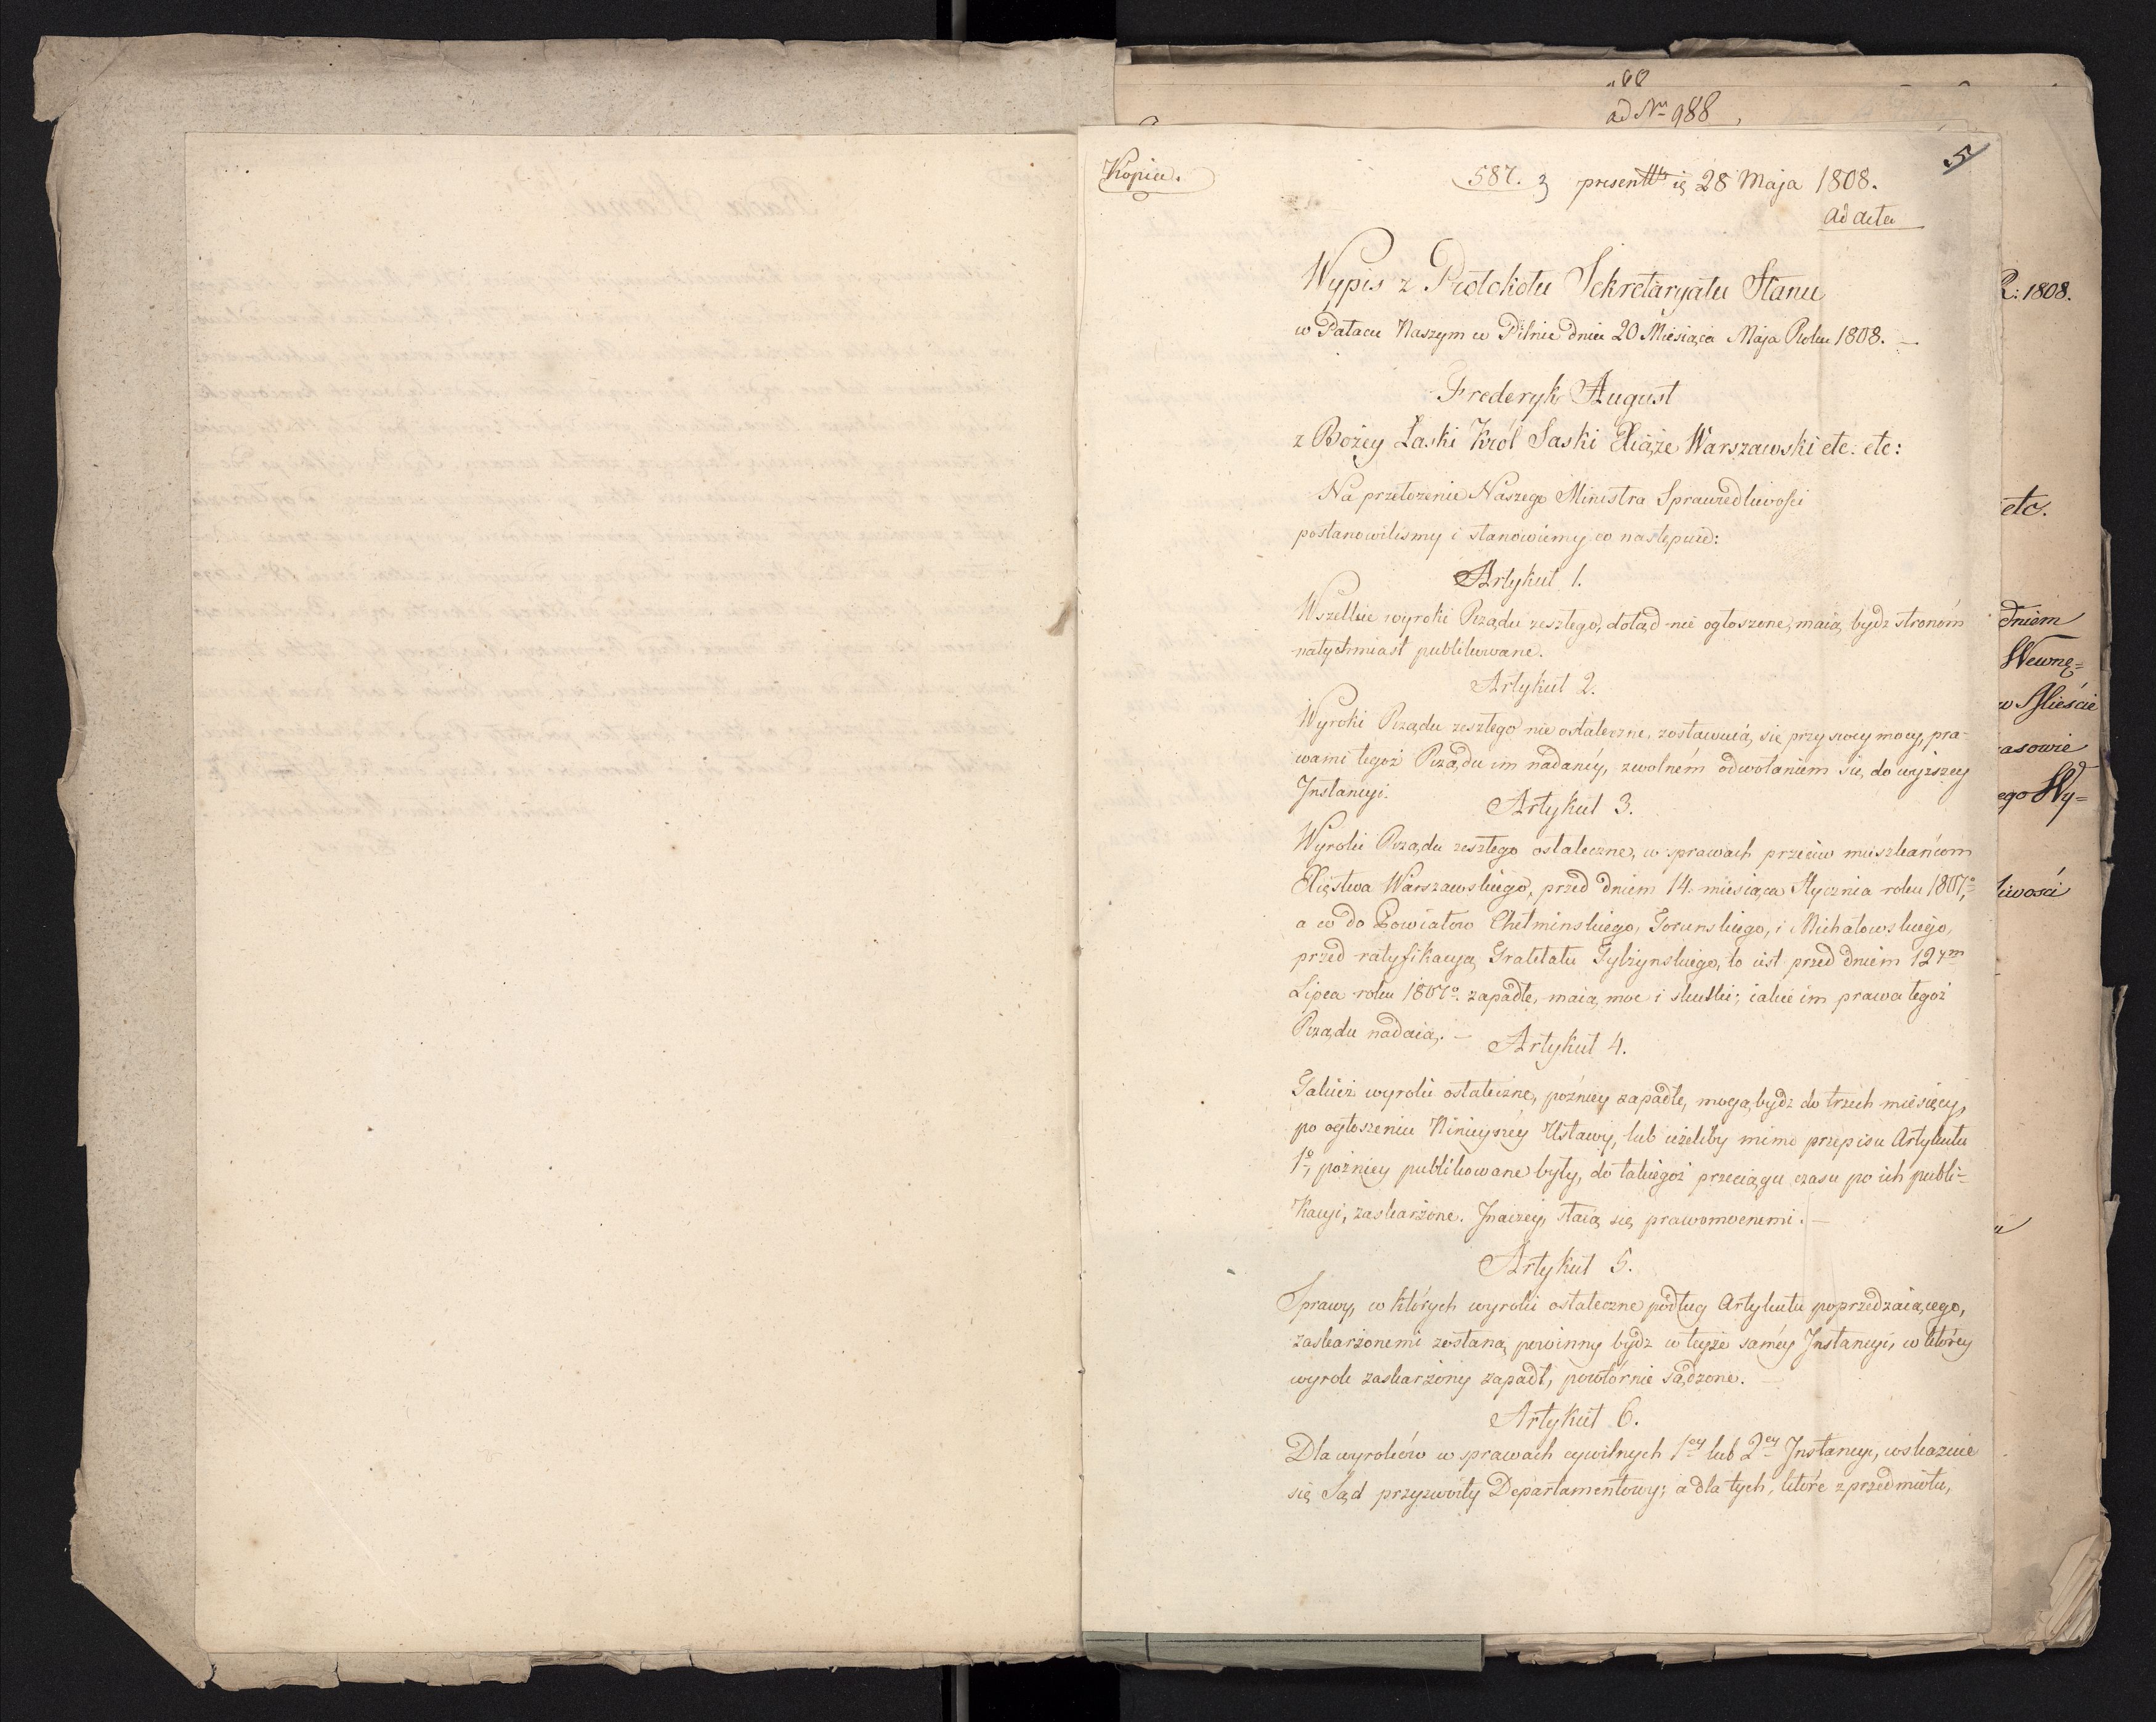 ad Nr 988
Kopia.
587. presentt: 28 Maja 1808.
5
ad acta
Wypis z Protokołu Sekretaryatu Stanu
w Pałacu Naszym w Pilnic dnia 20 Miesiąca Maja Roku 1808.
Frederyk August
z Bożey Łaski Król Saski Xiąże Warszawski etc: etc:
Na przełożenie Naszego Ministra Sprawiedliwości
postanowiliśmy i stanowiemy co następuie:
Artykuł 1.
Wszelkie wyroki Rządu zeszłego, dotąd nie ogłoszone, maią bydz stronóm
natychmiast publikowane.
Artykuł 2.
Wyroki Rządu zeszłego nie ostateczne, zostawuią się przy swey mocy, pra-
wami tegoż Rządu im nadanéy, z wolném odwołaniem się do wyższey
Instancyi.
Artykuł 3.
Wyroki Rządu zeszłego ostateczne, w sprawach przeciw mieszkańcom
Xięstwa Warszawskiego, przed dniem 14. miesiąca Stycznia roku 1807o,
a co do Powiatów Chełminskiego, Torunskiego, i Michałowskiego,
przed ratyfikacyą Traktatu Tylżynskiego, to iest przed dniem 12ym
Lipca roku 1807o. zapadłe, maią moc i skutki; iakie im prawa tegoż
Rządu nadaią. —
Artykuł 4.
Takież wyroki ostateczne, pózniey zapadłe, mogą bydz do trzech miesięcy,
po ogłoszeniu Ninieyszéy Ustawy, lub ieżeliby mimo przepisu Artykułu
1o, pózniey publikowane były, do takiegoż przeciągu czasu po ich publi-
kacyi, zaskarżone. Inaczey, staią się prawomocnemi. —
Artykuł 5.
Sprawy, w których wyroki ostateczne podług Artykułu poprzedzaiącego,
zaskarżonemi zostaną, powinny bydz w teyże saméy Instancyi, w któréy
wyrok zaskarżony zapadł, powtórnie sądzone. —
Artykuł 6.
Dla wyroków w sprawach cywilnych 1ey lub 2ey Instancyi, wskazuie
się Sąd przyzwoity Departamentowy; a dla tych, które z przedmiotu,
R: 1808.
etc.
dniem
Wewnę=
w Mieście
asowie
ego Wy=
liwości